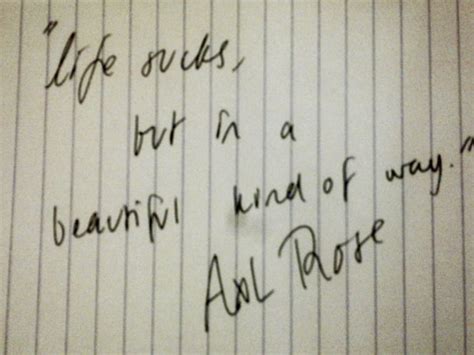 "life sucks,
but in a
beautiful kind of way."
Axl Rose